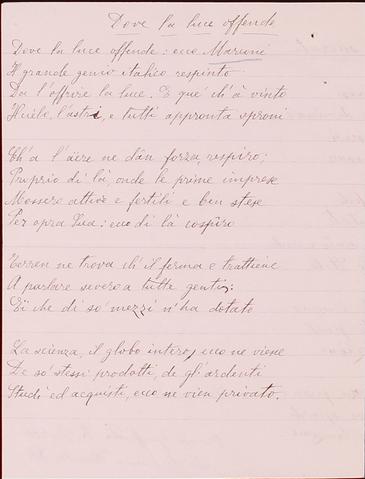 Dove la luce offende
Dove la luce offende: ecco Marconi
Il grande genio italico respinto
Da l'offrire la luce. E qué ch'à vinto
l'astri, e tutti appronta sproni
Ch'a l'äere ne dàn forza, respiro;
Proprio di là, onde le prime imprese
Mossero attive e fertili e ben stese
Per opra Sua: ecco di là cospiro
Terren ne trova ch'il ferma e trattiene
A parlare severo a tutte genti;
Ei che di so' mezzi n'ha dotato
La scienza, il globo intero, ecco ne viene
De so' stessi prodotti, de gl'ardenti
Studi ed acquisti, ecco ne vien privato.